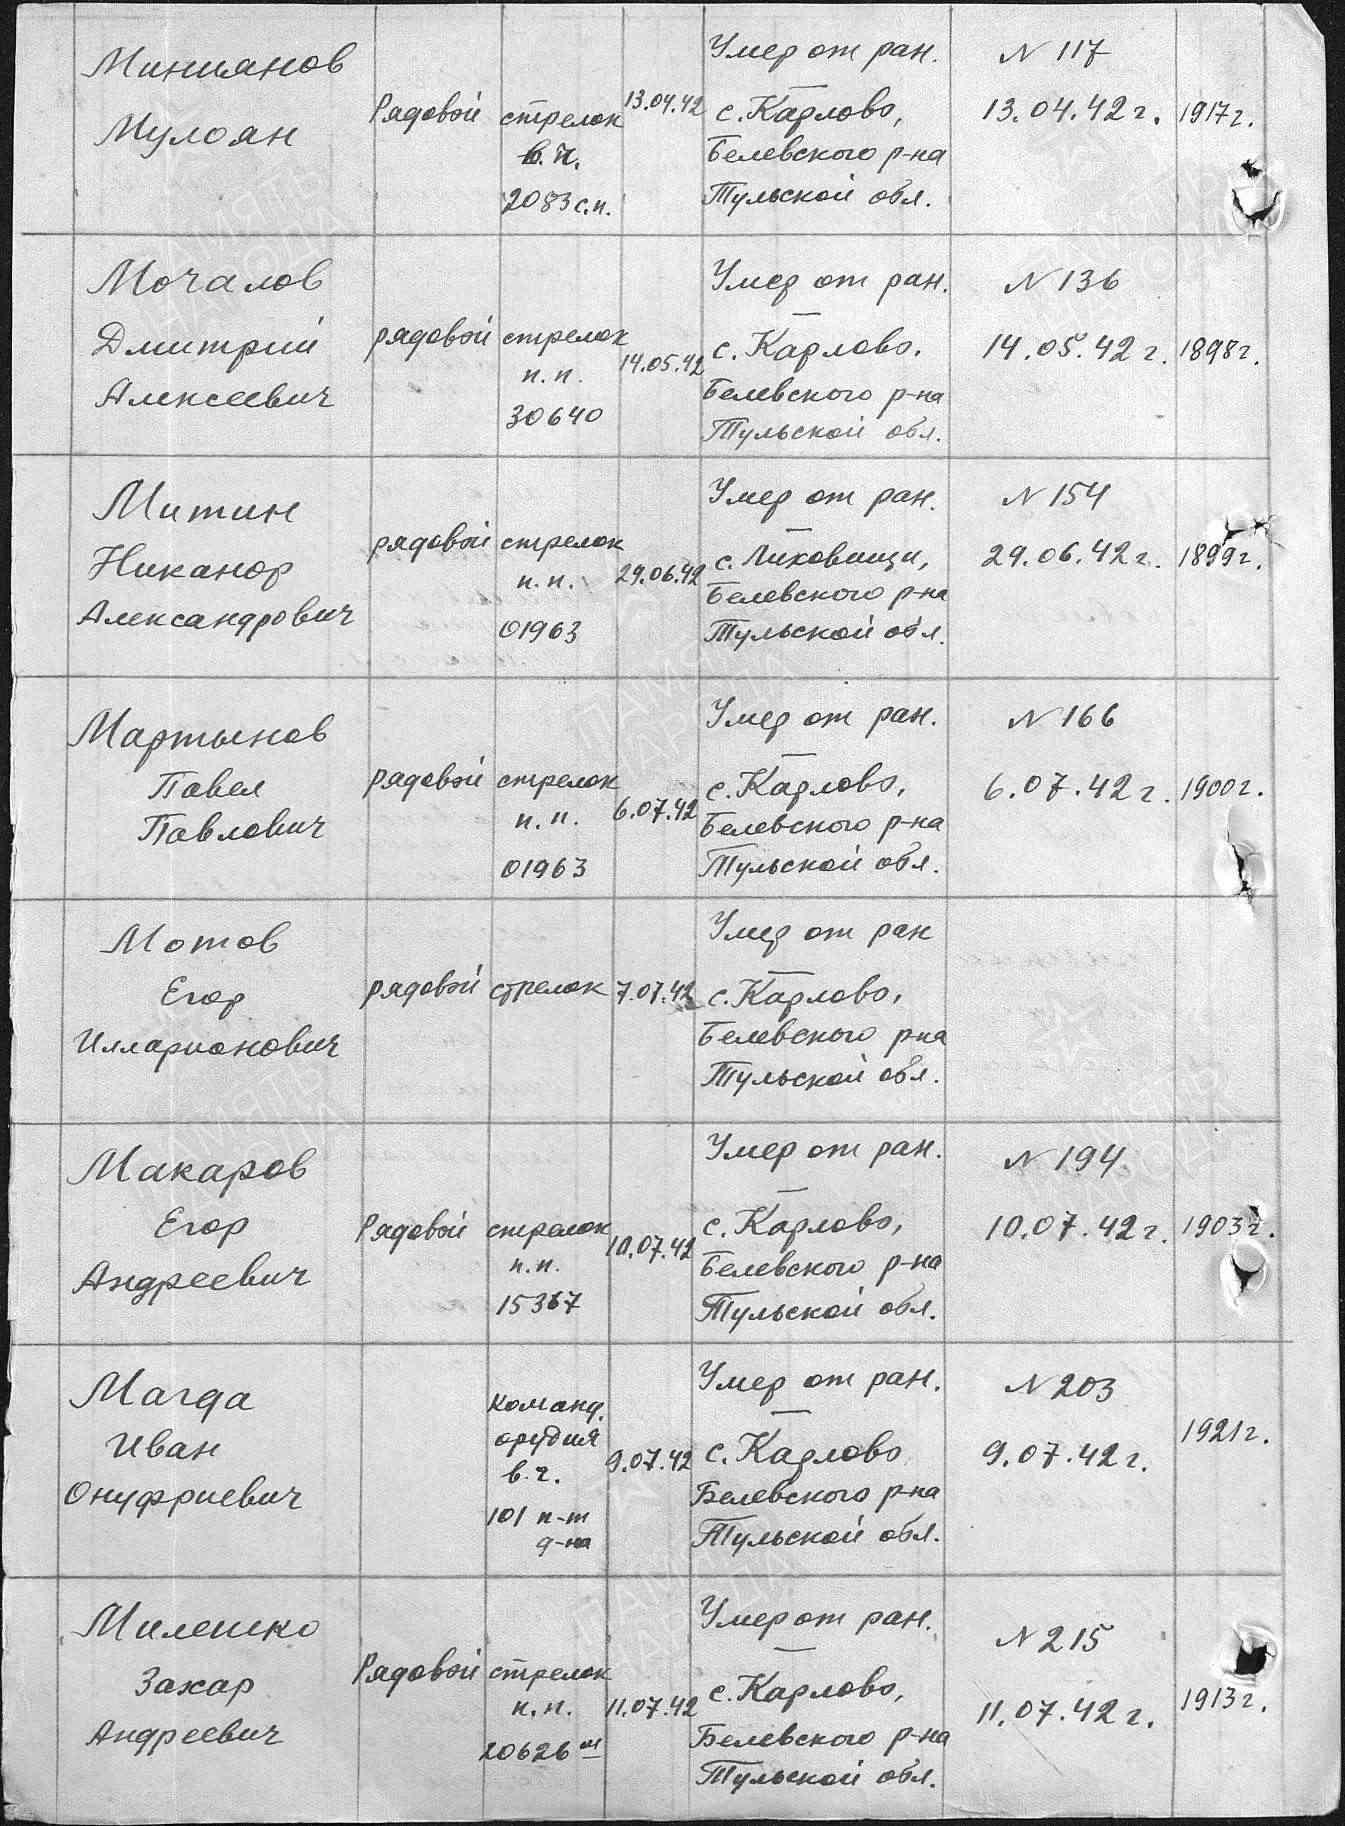 Миниянов
Мулоян
Рядовой
стрелок
в.ч.
2083 с.п.
13.04.42
Умер от ран.
с. Карлово,
Белевского р-на
Тульской обл.
N 117
13.04.42 г.
1917 г.
Мочалов
Дмитрий
Алексеевич
рядовой
стрелок
п.п.
30640
14.05.42
Умер от ран.
с. Карлово.
Белевского р-на
Тульской обл.
N 136
14.05.42 г.
1898 г.
Митин
Никанор
Александрович
рядовой
стрелок
п.п.
01963
29.06.42
Умер от ран.
с. Лиховищи,
Белевского р-на
Тульской обл.
N 154
29.06.42 г.
1899 г.
Мартынов
Павел
Павлович
рядовой
стрелок
п.п.
01963
6.07.42
Умер от ран.
с. Карлово,
Белевского р-на
Тульской обл.
N 166
6.07.42 г.
1900 г.
Мотов
Егор
Илларионович
рядовой
стрелок
7.07.42
Умер от ран
с. Карлово,
Белевского р-на
Тульской обл.
Макаров
Егор
Андреевич
Рядовой
стрелок
п.п.
15367
10.07.42
Умер от ран.
с. Карлово,
Белевского р-на
Тульской обл.
N 194
10.07.42 г.
1903 г.
Магда
Иван
Онуфриевич
команд.
орудия
в.ч.
101 п-т
д-на
9.07.42
Умер от ран.
с. Карлово
Белевского р-на
Тульской обл.
N 203
9.07.42 г.
1921 г.
Милешко
Захар
Андреевич
Рядовой
стрелок
п.п.
20626 "м"
11.07.42
Умер от ран.
с. Карлово,
Белевского р-на
Тульской обл.
N 215
11.07.42 г.
1913 г.